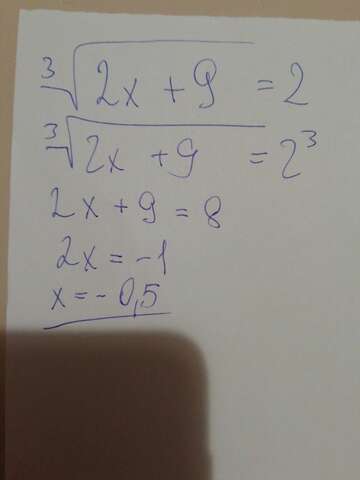 ∛(2x + 9) = 2
∛(2x + 9) = 2³
2x + 9 = 8
2x = -1
x = - 0,5